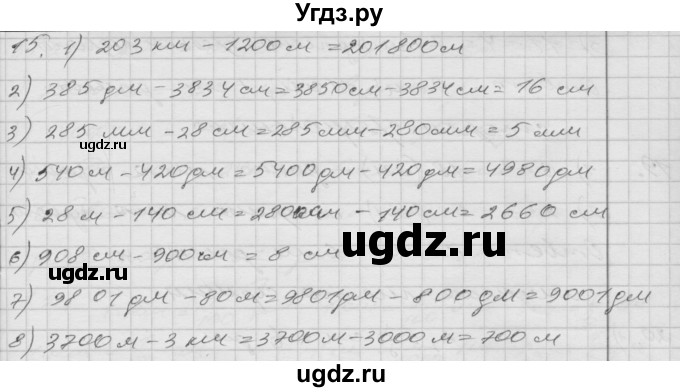 Угдз.ру
15. 1) 203 км - 1200 м = 201800 м
2) 385 дм - 3834 см = 3850 см - 3834 см = 16 см
угдз.ру
3) 285 мм - 28 см = 285 мм - 280 мм = 5 мм
угдз.ру
4) 540 м - 420 дм = 5400 дм - 420 дм = 4980 дм
5) 28 м - 140 см = 2800 см - 140 см = 2660 см
ugdz.ru
6) 908 см - 900 см = 8 см
угдз.ру
7) 9801 дм - 80 м = 9801 дм - 800 дм = 9001 дм
8) 3700 м - 3 км = 3700 м - 3000 м = 700 м
ugdz.ru